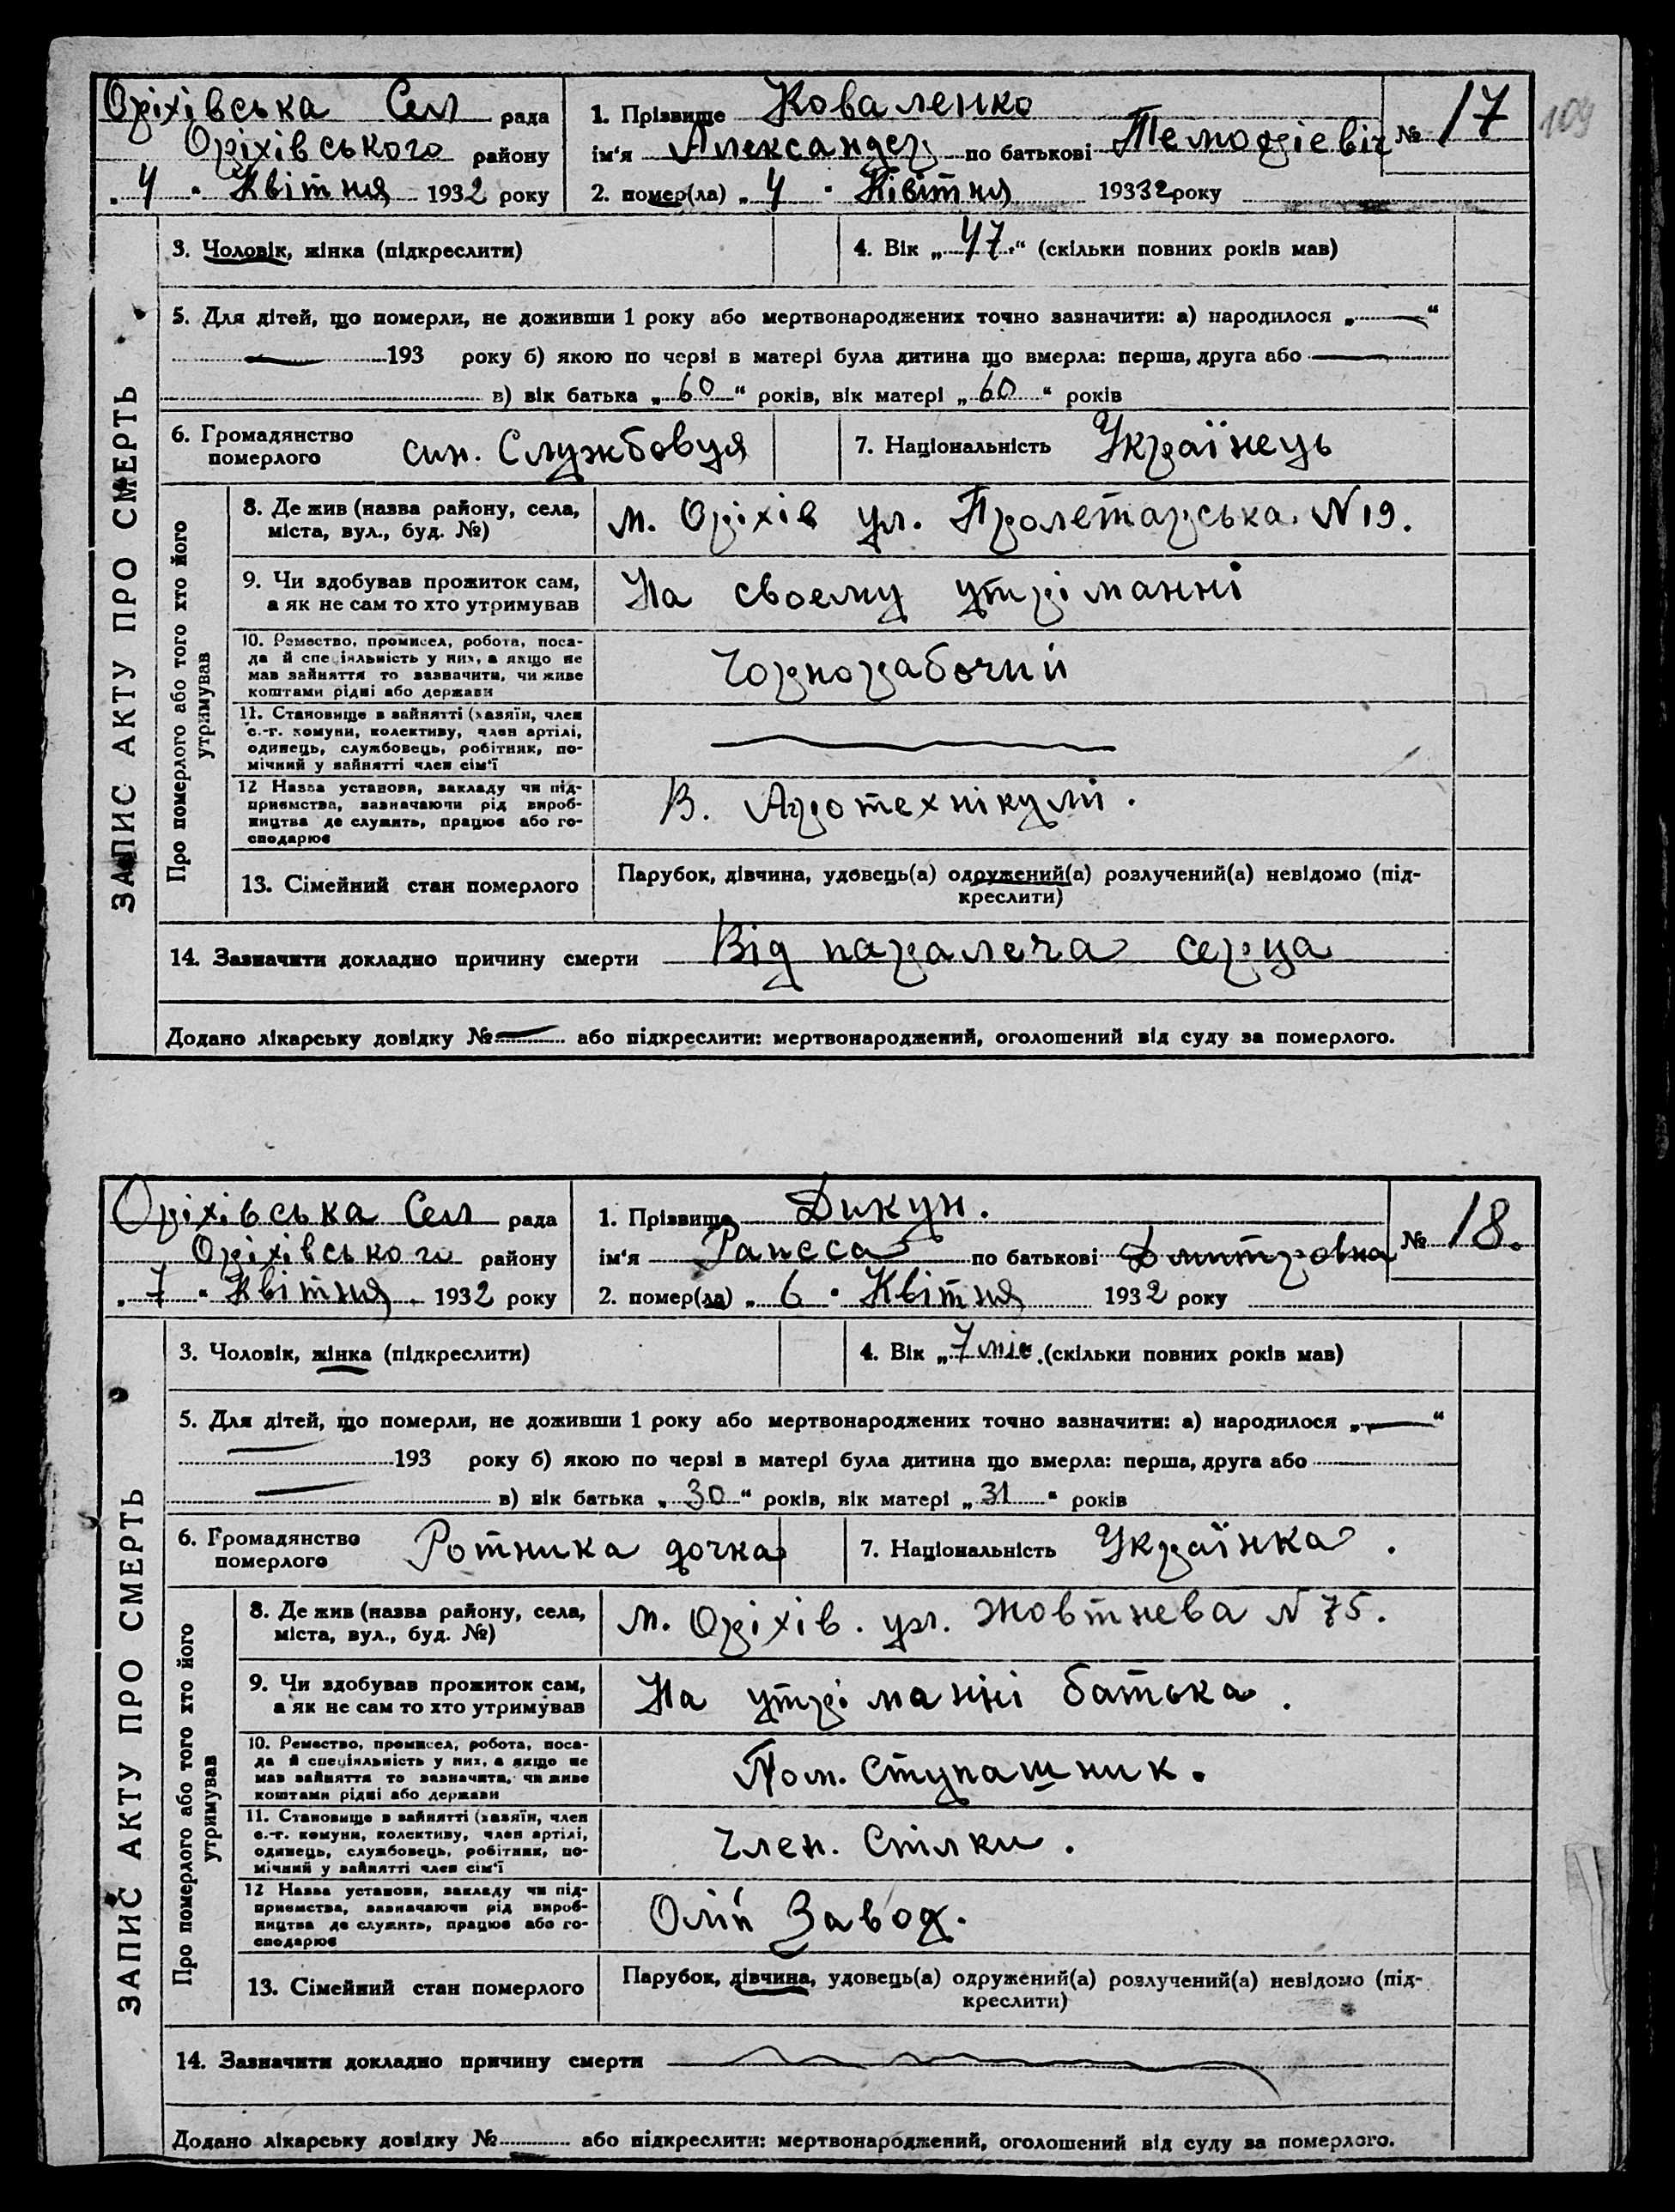 109
Оріхівська Сел рада
Оріхівського району
„4“ Квітня 1932 року
1. Прізвище Коваленко
ім'я Александер по батькові
№ 17
2. помер(ла) „4“ Квітня 19332 року
3. Чоловік, жінка (підкреслити)
4. Вік „47“ (скільки повних років мав)
5. Для дітей, що померли, не доживши 1 року або мертвонароджених точно зазначити: а) народилося „—“
— 193 року б) якою по черзі в матері була дитина що вмерла: перша, друга або —
в) вік батька „60“ років, вік матері „60“ років
6. Громадянство
померлого
син. Службовця
7. Національність Українець
ЗАПИС АКТУ ПРО СМЕРТЬ
Про померлого або того хто його
утримував
8. Де жив (назва району, села,
міста, вул., буд. №)
м. Оріхів ул. Пролетарська. N 19.
9. Чи здобував прожиток сам,
а як не сам то хто утримував
На своему утріманні
10. Ремество, промисел, робота, поса-
да й спеціяльність у них, а якщо не
мав зайняття то зазначити, чи живе
коштами рідні або держави
Чорнорабочий
11. Становище в зайнятті (хазяїн, член
с.-г. комуни, колективу, член артілі,
одинець, службовець, робітник, по-
мічний у зайнятті член сім'ї
—
12 Назва установи, закладу чи під-
приємства, зазначаючи рід вироб-
ництва де служить, працює або го-
сподарює
В. Агротехнікумі.
13. Сімейний стан померлого
Парубок, дівчина, удовець(а) одружений(а) розлучений(а) невідомо (під-
креслити)
14. Зазначити докладно причину смерти Від паралеча серца
Додано лікарську довідку № — або підкреслити: мертвонароджений, оголошений від суду за померлого.
Оріхівська Сел рада
Оріхівського району
„7“ Квітня 1932 року
1. Прізвище Дикун.
ім'я Раисса по батькові Дмитровна
№ 18.
2. помер(ла) „6“ Квітня 1932 року
3. Чоловік, жінка (підкреслити)
4. Вік „7 міс. (скільки повних років мав)
5. Для дітей, що померли, не доживши 1 року або мертвонароджених точно зазначити: а) народилося „—“
— 193 року б) якою по черзі в матері була дитина що вмерла: перша, друга або
— в) вік батька „30“ років, вік матері „31“ років
6. Громадянство
померлого
дочка
7. Національність Українка.
ЗАПИС АКТУ ПРО СМЕРТЬ
Про померлого або того хто його
утримував
8. Де жив (назва району, села,
міста, вул., буд. №)
м. Оріхів. ул. Жовтнева N 75.
9. Чи здобував прожиток сам,
а як не сам то хто утримував
На утріманні батька.
10. Ремество, промисел, робота, поса-
да й спеціяльність у них, а якщо не
мав зайняття то зазначити, чи живе
коштами рідні або держави
Пом. Ступашник.
11. Становище в зайнятті (хазяїн, член
с.-г. комуни, колективу, член артілі,
одинець, службовець, робітник, по-
мічний у зайнятті член сім'ї
Член. Спілки.
12 Назва установи, закладу чи під-
приємства, зазначаючи рід вироб-
ництва де служить, працює або го-
сподарює
Олій Завод.
13. Сімейний стан померлого
Парубок, дівчина, удовець(а) одружений(а) розлучений(а) невідомо (під-
креслити)
14. Зазначити докладно причину смерти
Додано лікарську довідку № або підкреслити: мертвонароджений, оголошений від суду за померлого.